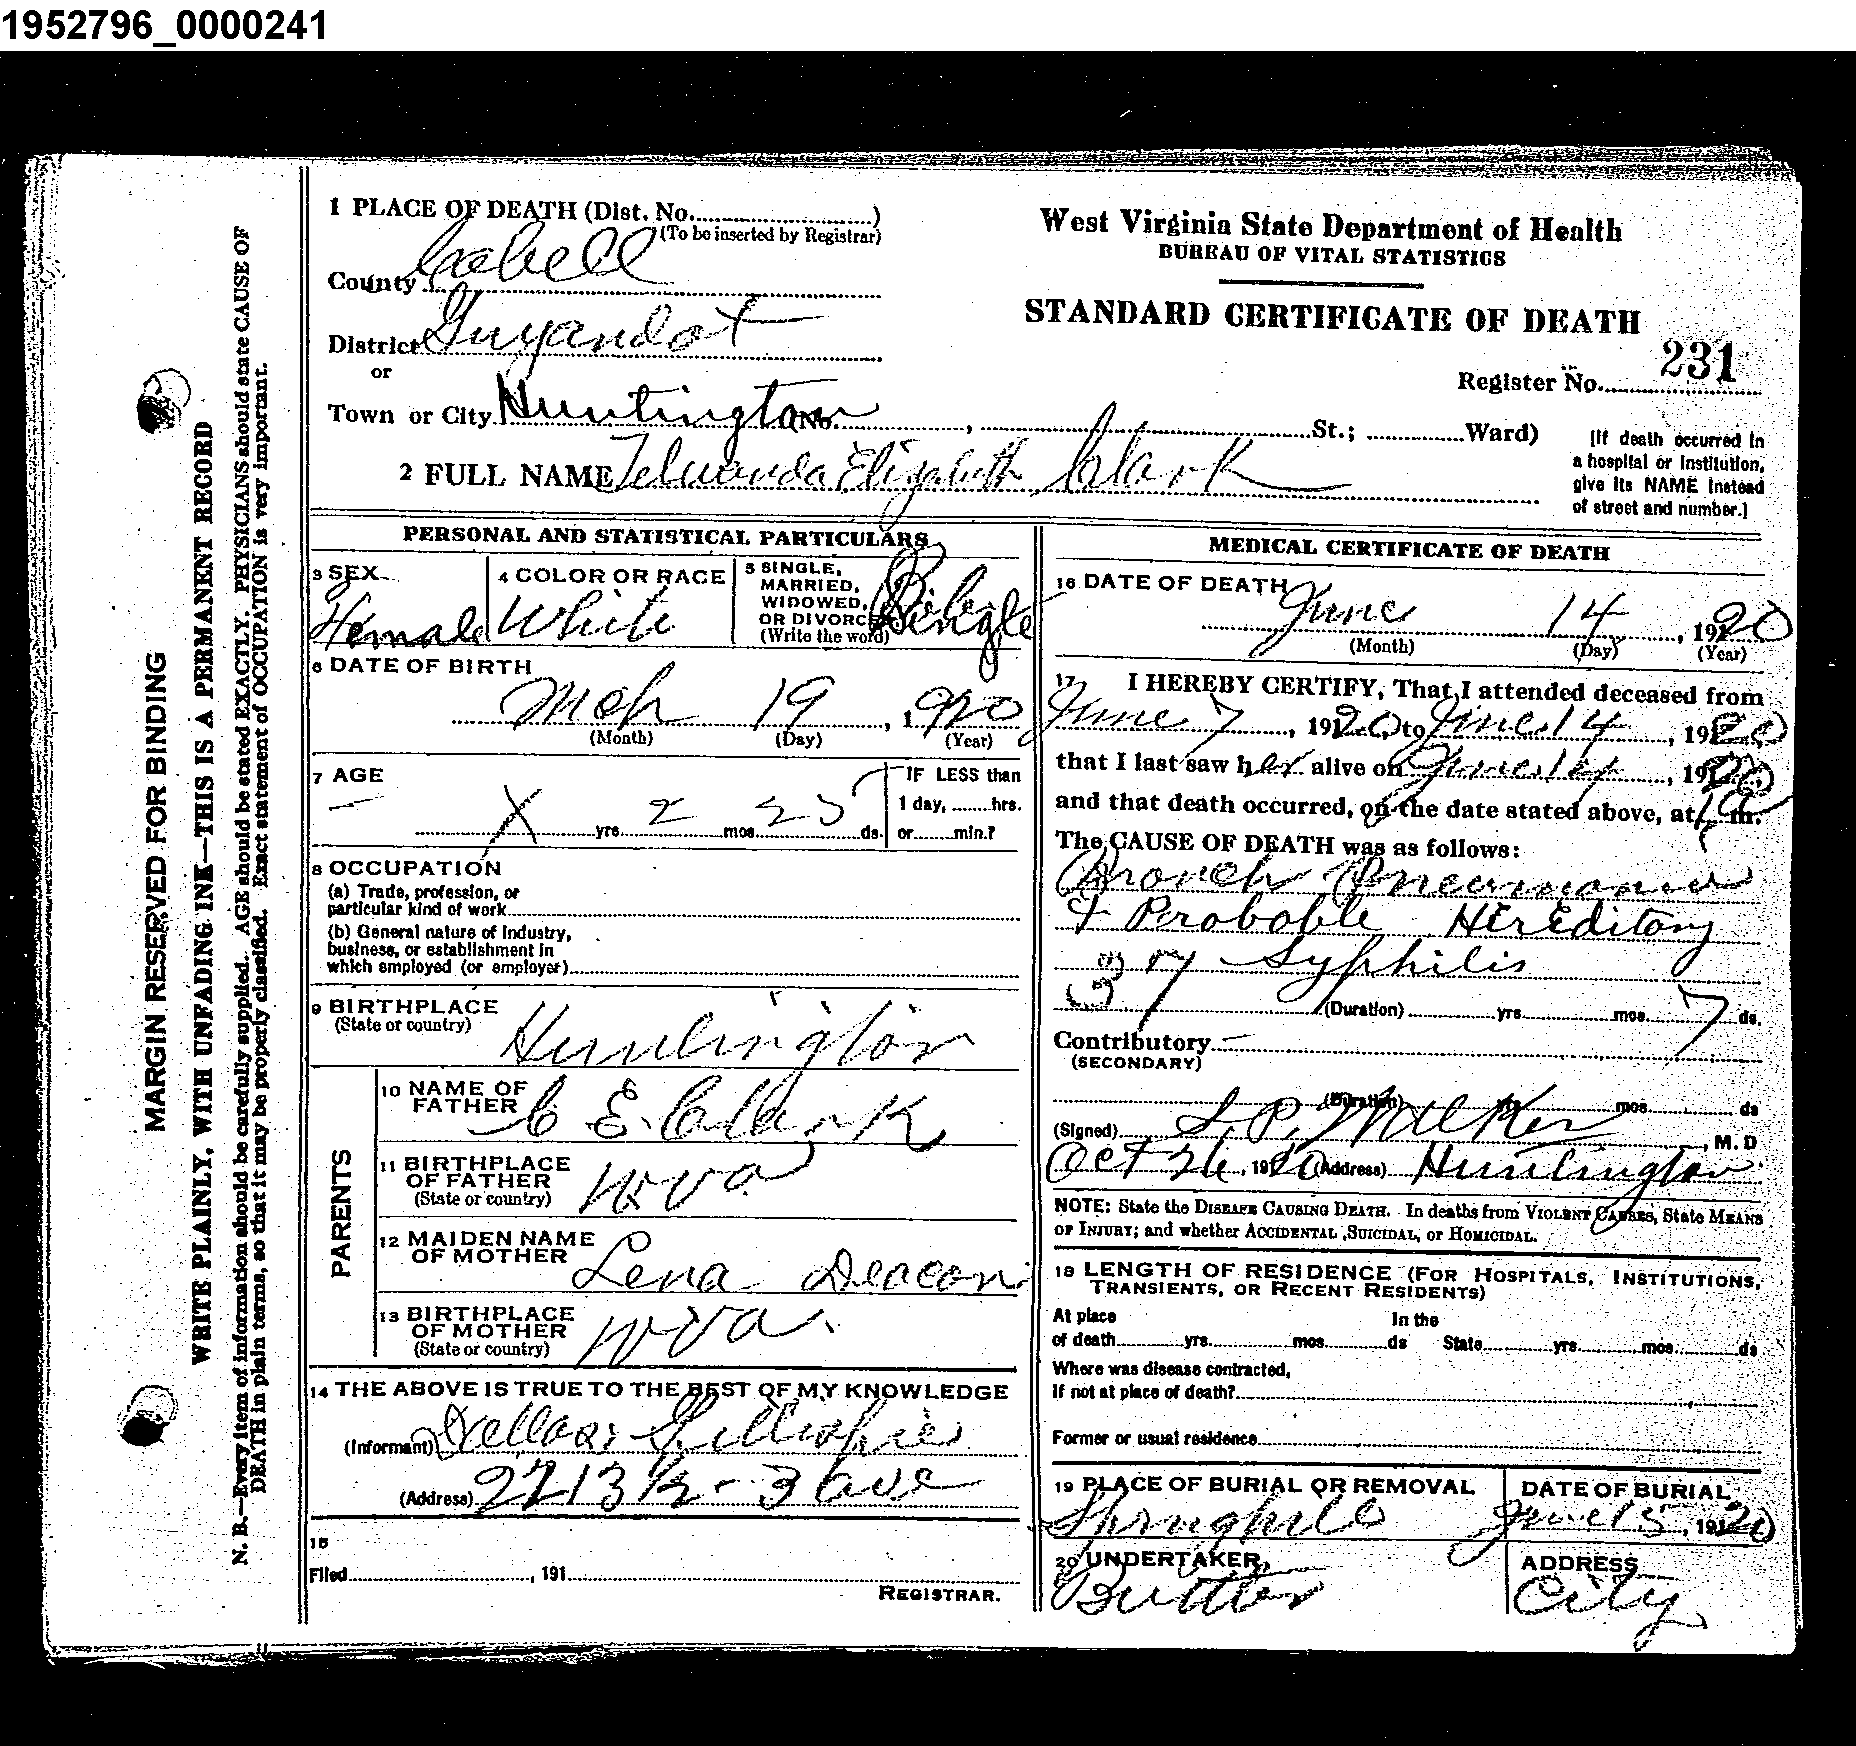 1952796_0000241
MARGIN RESERVED FOR BINDING
WRITE PLAINLY, WITH UNFADING INK—THIS IS A PERMANENT RECORD
N. B.—Every item of information should be carefully supplied. AGE should be stated EXACTLY. PHYSICIANS should state CAUSE OF
DEATH in plain terms, so that it may be properly classified. Exact statement of OCCUPATION is very important.
1 PLACE OF DEATH (Dist. No. )
(To be inserted by Registrar)
County Cabell
District Guyandot
or
Town or City Huntington (No. , St.; Ward)
West Virginia State Department of Health
BUREAU OF VITAL STATISTICS
STANDARD CERTIFICATE OF DEATH
Register No. 231
[If death occurred in
a hospital or institution,
give its NAME instead
of street and number.]
2 FULL NAME Elizabeth Clark
PERSONAL AND STATISTICAL PARTICULARS
3 SEX
Female
4 COLOR OR RACE
White
5 SINGLE,
MARRIED,
WIDOWED,
OR DIVORCED
(Write the word)
Single
6 DATE OF BIRTH
Mch 19, 1920
(Month) (Day) (Year)
7 AGE
— X yrs. 2 mos. 25 ds.
IF LESS than
1 day, hrs.
or min.?
8 OCCUPATION
(a) Trade, profession, or
particular kind of work
(b) General nature of Industry,
business, or establishment in
which employed (or employer)
9 BIRTHPLACE
(State or country)
Huntington
PARENTS
10 NAME OF
FATHER
C E. Clark
11 BIRTHPLACE
OF FATHER
(State or country)
W Va
12 MAIDEN NAME
OF MOTHER
Lena Deacon
13 BIRTHPLACE
OF MOTHER
(State or country)
W Va.
14 THE ABOVE IS TRUE TO THE BEST OF MY KNOWLEDGE
(Informant) Gillispie
(Address) 2213 ½ - 3 ave
15
Filed , 191
REGISTRAR.
MEDICAL CERTIFICATE OF DEATH
16 DATE OF DEATH
June 14, 1920
(Month) (Day) (Year)
17 I HEREBY CERTIFY, That I attended deceased from
June 7, 1920, to June 14, 1920,
that I last saw her alive on June 14, 1920,
and that death occurred, on the date stated above, at m.
The CAUSE OF DEATH was as follows:
Bronch Pneumonia
+ Probable Hereditory
37 Syphilis
37 (Duration) yrs. mos. 7 ds.
Contributory —
(SECONDARY)
(Duration) mos. ds
(Signed) , M. D
Oct 26, 1920 (Address) Huntington
NOTE: State the DISEASE CAUSING DEATH. In deaths from VIOLENT CAUSES, State MEANS
OF INJURY; and whether ACCIDENTAL, SUICIDAL, OR HOMICIDAL.
18 LENGTH OF RESIDENCE (FOR HOSPITALS, INSTITUTIONS,
TRANSIENTS, OR RECENT RESIDENTS)
At place In the
of death yrs. mos. ds State yrs. mos. ds
Where was disease contracted,
If not at place of death?
Former or usual residence
19 PLACE OF BURIAL OR REMOVAL
Springhill
DATE OF BURIAL
June 15, 1920
20 UNDERTAKER,
ADDRESS
City